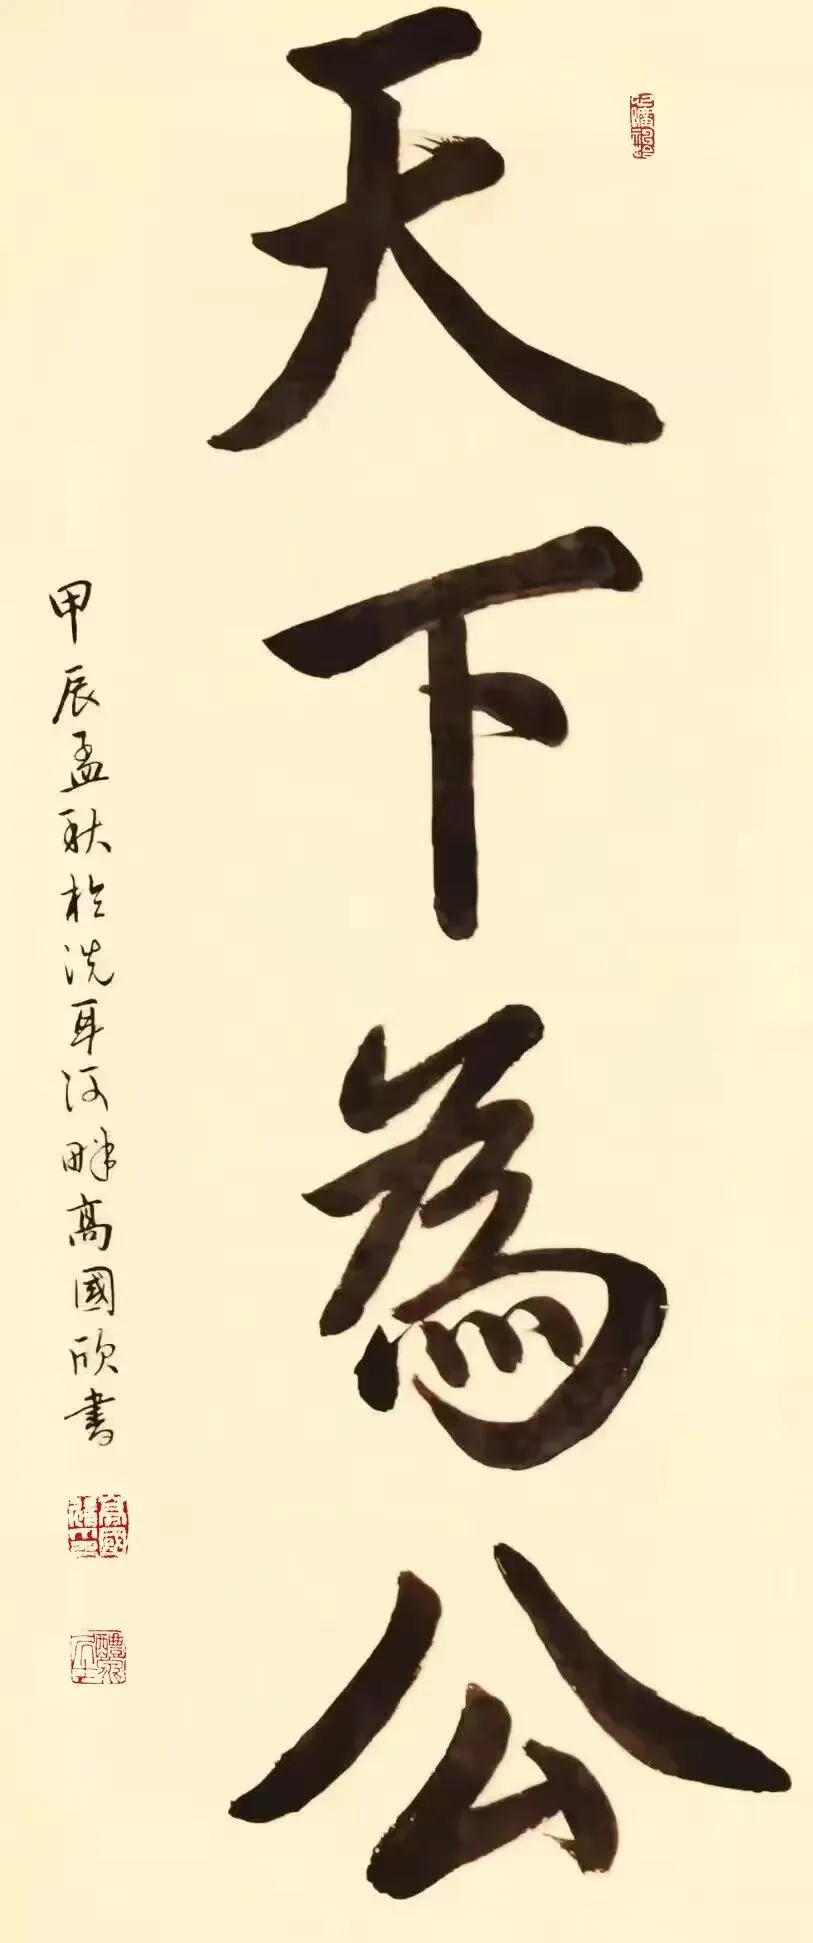 天下為公
甲辰孟秋於洗耳河畔高國欣書